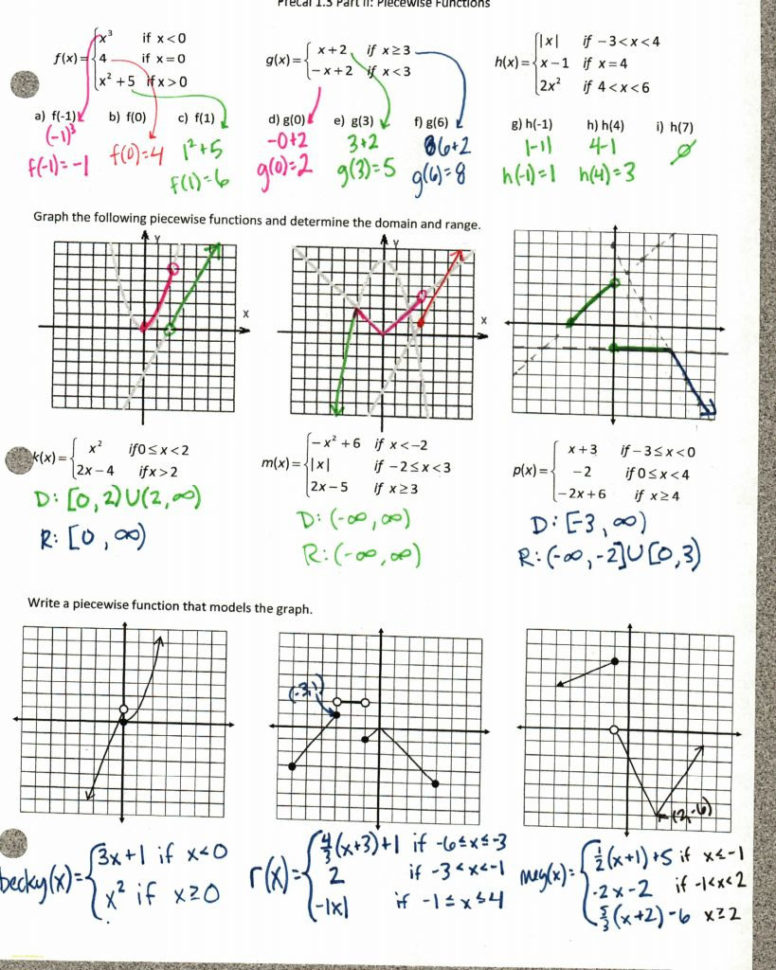 Precal 1.3 Part II: Piecewise Functions
f(x)= { x³ if x<0
4 if x=0
x²+5 if x>0
g(x)= { x+2 if x≥3
−x+2 if x<3
h(x)= { |x| if −3<x<4
x−1 if x=4
2x² if 4<x<6
a) f(-1) b) f(0) c) f(1) d) g(0) e) g(3) f) g(6) g) h(-1) h) h(4) i) h(7)
(-1)³ 1²+5 -0+2 3+2 6+2 |-1| 4-1 ∅
f(-1)=-1 f(0)=4 f(1)=6 g(0)=2 g(3)=5 g(6)=8 h(-1)=1 h(4)=3
Graph the following piecewise functions and determine the domain and range.
Y
X
Y
X
k(x)= { x² if 0≤x<2
2x−4 if x>2
m(x)= { −x²+6 if x<−2
|x| if −2≤x<3
2x−5 if x≥3
p(x)= { x+3 if −3≤x<0
−2 if 0≤x<4
−2x+6 if x≥4
D: [0,2)U(2,∞)
R: [0,∞)
D: (-∞,∞)
R: (-∞,∞)
D: [-3,∞)
R: (-∞,-2]U[0,3)
Write a piecewise function that models the graph.
(-3,1)
(2,-6)
becky(x)= { 3x+1 if x<0
x² if x≥0
r(x)= { 4/3(x+3)+1 if -6≤x≤-3
2 if -3<x<-1
-|x| if -1≤x≤4
meg(x)= { 1/2(x+1)+5 if x≤-1
-2x-2 if -1<x<2
5/3(x+2)-6 x≥2